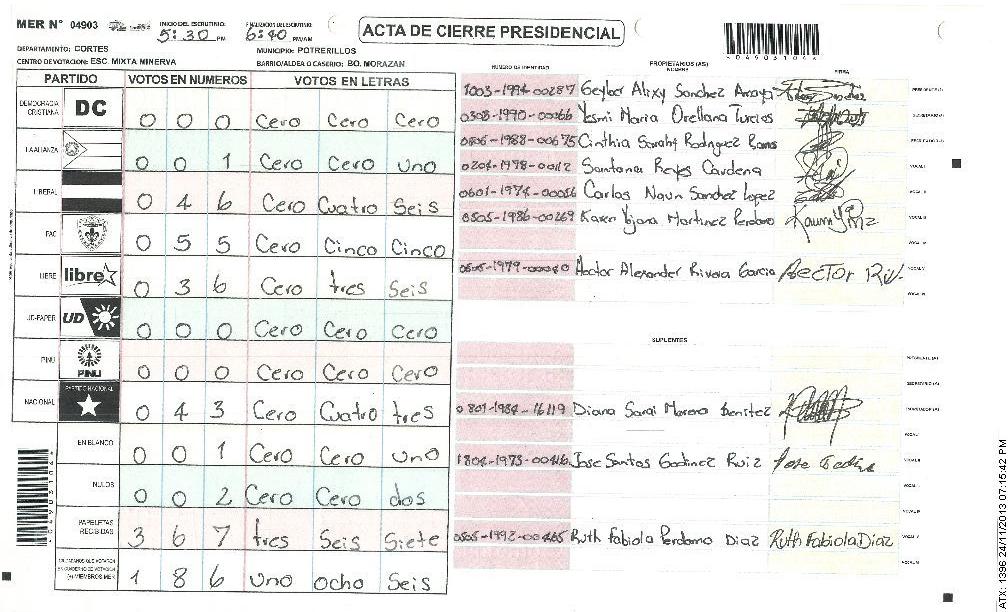 MER N° 04903 INICIO DEL ESCRUTINIO: 5:30 PM FINALIZACION DEL ESCRUTINIO: 6:40 PM/AM ACTA DE CIERRE PRESIDENCIAL
DEPARTAMENTO: CORTES MUNICIPIO: POTRERILLOS
CENTRO DE VOTACION: ESC. MIXTA MINERVA BARRIO/ALDEA O CASERIO: BO. MORAZAN
PARTIDO VOTOS EN NUMEROS VOTOS EN LETRAS
DEMOCRACIA CRISTIANA DC 0 0 0 Cero Cero Cero
LA ALIANZA 0 0 1 Cero Cero uno
LIBERAL 0 4 6 Cero Cuatro Seis
PAC 0 5 5 Cero Cinco Cinco
LIBRE libre 0 3 6 Cero tres Seis
UD-FAPER UD 0 0 0 Cero Cero Cero
PINU PINU 0 0 0 Cero Cero Cero
NACIONAL PARTIDO NACIONAL 0 4 3 Cero Cuatro tres
EN BLANCO 0 0 1 Cero Cero uno
NULOS 0 0 2 Cero Cero dos
PAPELETAS RECIBIDAS 3 6 7 tres Seis Siete
CIUDADANOS QUE VOTARON EN CUADERNO DE VOTACION (+) MIEMBROS MER 1 8 6 uno ocho Seis
NUMERO DE IDENTIDAD PROPIETARIOS (AS) NOMBRE FIRMA
1003-1994-00287 Geyber Alixy Sanchez Amaya PRESIDENTE (A)
0308-1970-00066 Yesmi Maria Orellana Turcios SECRETARIO (A)
0506-1988-00675 Cinthia Sarahy Rodriguez Ramos ESCRUTADOR (A)
0204-1978-00112 Santana Reyes Cardena VOCAL I
0601-1974-00056 Carlos Naun Sanchez Lopez VOCAL II
0505-1986-00269 Karen Yojana Martinez Perdomo VOCAL III
VOCAL IV
Hector Alexander Rivera Garcia Hector Riv. VOCAL V
VOCAL VI
SUPLENTES
PRESIDENTE (A)
SECRETARIO (A)
0801-1984-16119 Diana Sarai Moreno Benitez ESCRUTADOR (A)
VOCAL I
1804-1973-00416 Jose Santos Godinez Ruiz VOCAL II
VOCAL V
0505-1992-00465 Ruth Fabiola Perdomo Diaz Ruth Fabiola Diaz
VOCAL VI
ATX: 1396 24/11/2013 07:15:42 PM